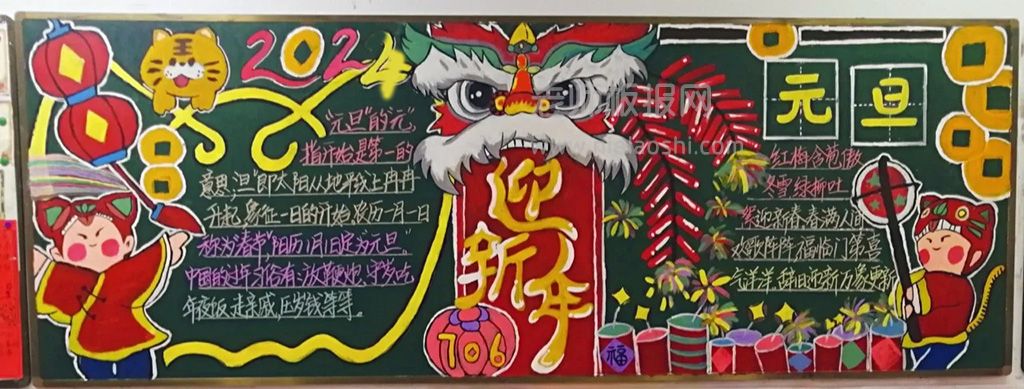 王
2024
"元旦"的"元"
指开始是第一的
意思,"旦"即太阳从地平线上冉冉
升起,象征一日的开始.农历一月一日
称为"春节"阳历1月1日定为"元旦"
中国的过年习俗有:放鞭炮、守岁、吃
年夜饭,走亲戚,压岁钱等等.
迎新年
706
福
元旦
红梅含苞傲
冬雪绿柳吐
絮迎新春.春满人间
欢歌阵阵,福临门第喜
气洋洋,辞旧迎新万象更新
老师板报网